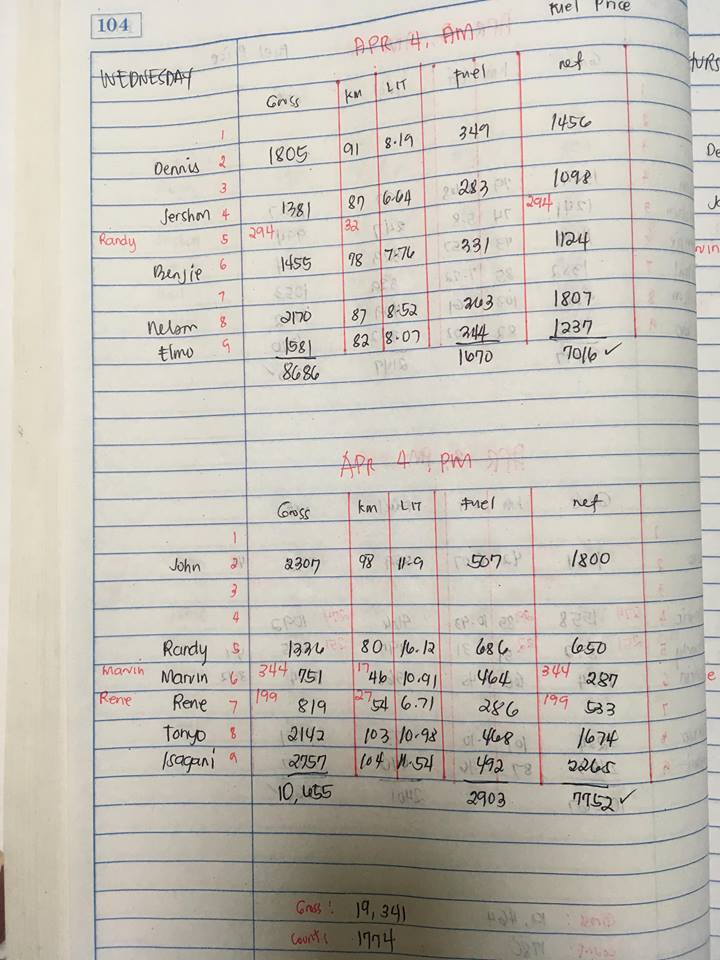 Fuel Price
104
APR 4, AM
WEDNESDAY
Gross KM LIT Fuel net
1
Dennis 2 1805 91 8.19 349 1456
3
Jershon 4 1381 87 6.64 283 1098
Randy 5 294 32 294
Benjie 6 1455 78 7.76 331 1124
7
Nelson 8 2170 87 8.52 363 1807
Elmo 9 1581 82 8.07 344 1237
8686 1670 7016 ✓
APR 4, PM
Gross KM LIT Fuel net
1
John 2 2307 98 11.9 507 1800
3
4
Randy 5 1336 80 16.12 686 650
Marvin Marvin 6 344 751 17 46 10.91 464 344 287
Rene Rene 7 199 819 27 54 6.71 286 199 533
Tonyo 8 2142 103 10.98 468 1674
Isagani 9 2757 104 11.54 492 2265
10,655 2903 7752 ✓
Gross: 19,341
Counts: 1774